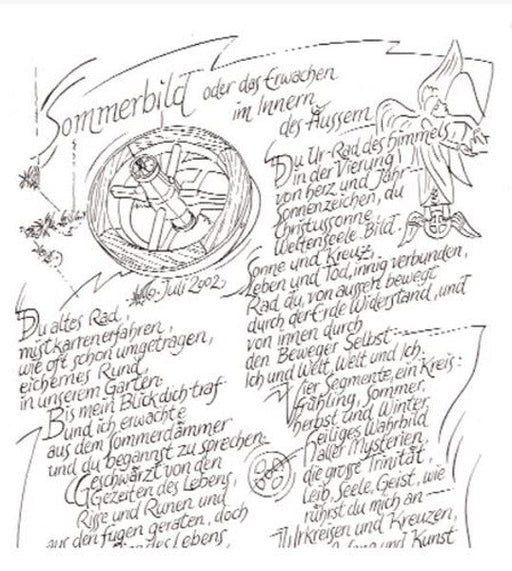 Sommerbild oder das Erwachen
im Innern
des Äussern
16. Juli 2002
Du altes Rad,
mistkarrenerfahren,
wie oft schon umgetragen,
eichernes Rund,
in unserem Garten.
Bis mein Blick dich traf
und ich erwachte
aus dem Sommerdämmer
und du begannst zu sprechen:
Geschwärzt von den
Gezeiten des Lebens,
Risse und Runen und
aus den Fugen geraten, doch
des Lebens,
Du Ur-Rad des Himmels
in der Vierung
von Herz und Jahr
Sonnenzeichen, du
Christussonne
Weltenseele-Bild.
Sonne und Kreuz,
Leben und Tod, innig verbunden,
Rad du, von aussen bewegt
durch der Erde Widerstand, und
von innen durch
den Beweger Selbst
Ich und Welt, Welt und Ich,
Vier Segmente, ein Kreis:
Frühling, Sommer,
Herbst und Winter
Heiliges Wahrbild
aller Mysterien,
die grosse Trinität,
Leib, Seele, Geist, wie
rührst du mich an
Urkreisen und Kreuzen,
und Kunst